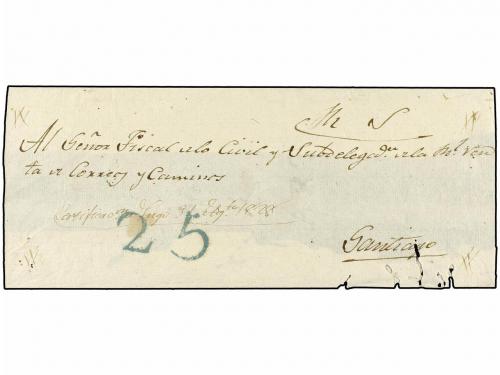 M S
Al Señor Fiscal de lo Civil y Subdelegado. de la Rl. Ren
ta de Correos y Caminos
25
Santiago